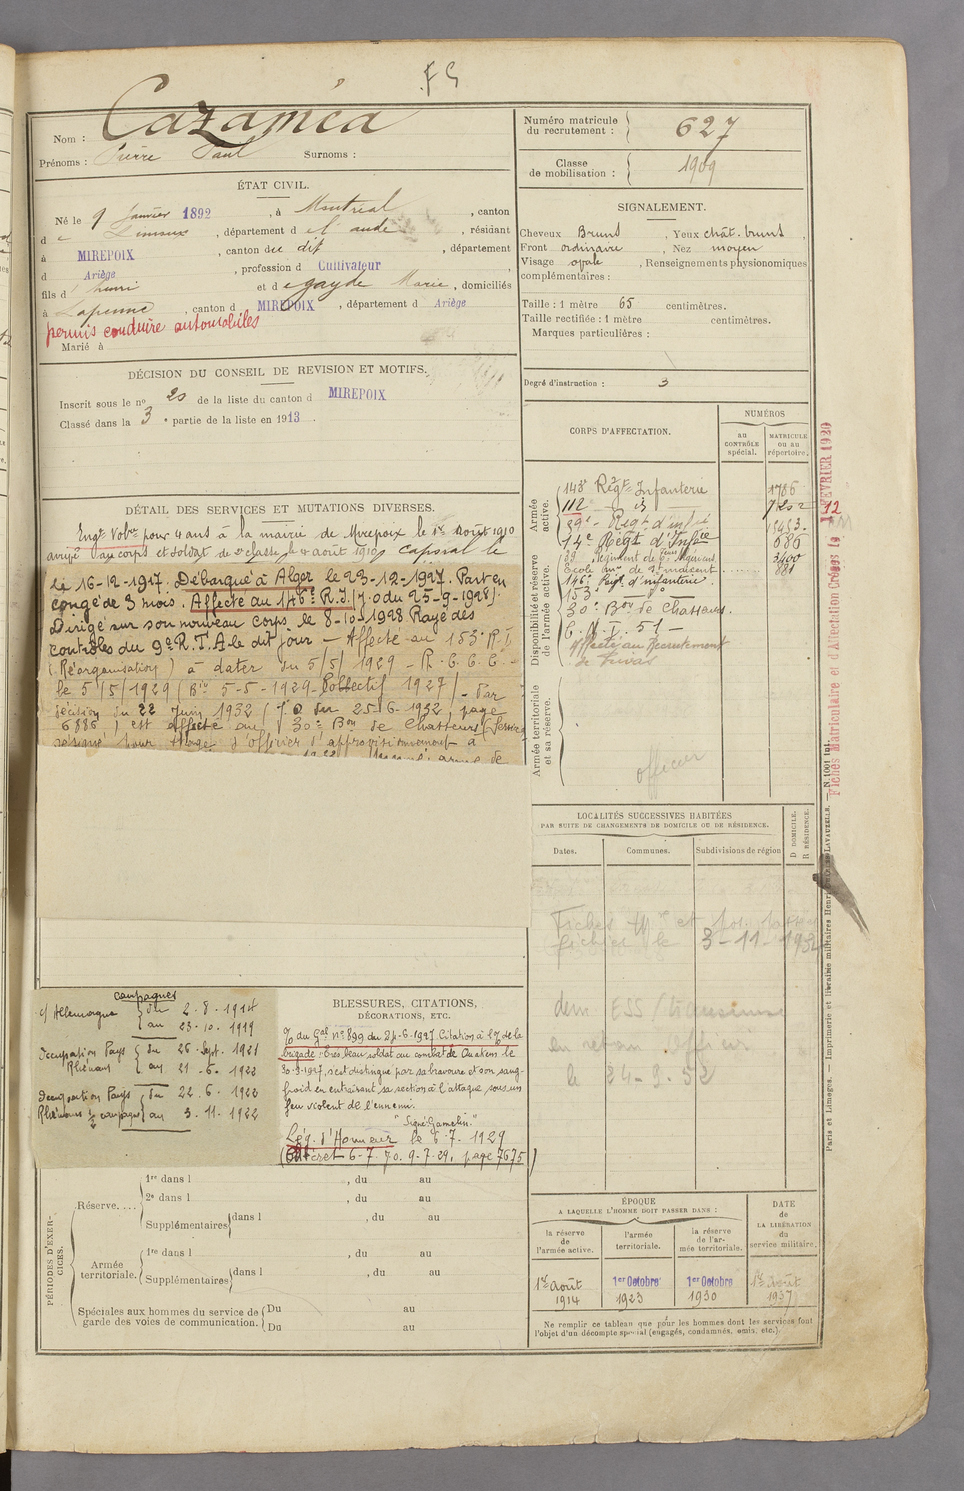 FS
Nom : Cazaméa
Prénoms : Pierre Paul Surnoms :
ÉTAT CIVIL.
Né le 9 Janvier 1892, à Montréal, canton
d e Limoux, département d e l'aude, résidant
à MIREPOIX, canton de du dit, département
d Ariège, profession d Cultivateur
fils d' henri et d egayde Marie, domiciliés
à Lapenne, canton d MIREPOIX, département d Ariège
permis conduire automobiles
Marié à
DÉCISION DU CONSEIL DE REVISION ET MOTIFS.
Inscrit sous le no 20 de la liste du canton d MIREPOIX
Classé dans la 3 e partie de la liste en 1913.
DÉTAIL DES SERVICES ET MUTATIONS DIVERSES.
Engt Volre pour 4 ans à la mairie de Mirepoix le 1er Août 1910
arrivé au corps et soldat de 2e classe le 4 août 1910, caporal le
le 16-12-1927. Débarqué à Alger le 23-12-1927. Part en
congé de 3 mois. Affecté au 146e R.I. (J.O du 25-9-1928).
Dirigé sur son nouveau corps le 8-10-1928 Rayé des
contrôles du 9e R.T.A. le dit jour — Affecté au 153e R.I.
(Réorganisation) à dater du 5/5/1929 — R.C.C.C. —
le 5/5/1929 (Bin 5-5-1929 - Collectif 1927) — Par
décision du 22 Juin 1932 (J.O du 25-6-1932, page
6886) est affecté au 30e Bon de Chasseurs (Service
réservé pour stage d'officier d'approvisionnement à
campagnes
c/ Allemagne du 2-8-1914
au 23-10-1919
Occupation Pays Rhénans du 26-Sept-1921
au 21-6-1922
Occupation Pays Rhénans 1/2 campagne du 22-6-1922
au 3-11-1922
BLESSURES, CITATIONS,
DÉCORATIONS, ETC.
O/ du Gal no 899 du 24-6-1927. Citation à l'O/ de la
brigade : Très beau soldat au combat de Ouatiens le
30-3-1927, s'est distingué par sa bravoure et son sang-
froid en entraînant sa section à l'attaque sous un
feu violent de l'ennemi.
"Signé: Gamelin".
Lég. d'Honneur le 6-7-1929
(Décret 6-7 J.O. 9-7-29, page 7675)
PÉRIODES D'EXERCICES.
Réserve....
1re dans l , du au
2e dans l , du au
Supplémentaires dans l , du au
Armée territoriale.
1re dans l , du au
Supplémentaires dans l , du au
Spéciales aux hommes du service de garde des voies de communication.
Du au
Du au
Numéro matricule du recrutement : 627
Classe de mobilisation : 1909
SIGNALEMENT.
Cheveux Bruns, Yeux chât. bruns,
Front ordinaire, Nez moyen
Visage ovale, Renseignements physionomiques
complémentaires :
Taille : 1 mètre 65 centimètres.
Taille rectifiée : 1 mètre centimètres.
Marques particulières :
Degré d'instruction : 3
CORPS D'AFFECTATION.
NUMÉROS
au CONTRÔLE spécial.
MATRICULE ou au répertoire.
Armée active.
Disponibilité et réserve de l'armée active.
Armée territoriale et sa réserve.
143e Régt Infanterie 1786
112
39e Régt d'inf.
14e Régt d'Infie 686
École mre de St Maixent 881
146e Régt d'infanterie.
153e do
30e Bon de Chasseurs.
C.M.I. 51 —
Affecté au Recrutement
officier
LOCALITÉS SUCCESSIVES HABITÉES
PAR SUITE DE CHANGEMENTS DE DOMICILE OU DE RÉSIDENCE.
Dates.
Communes.
Subdivisions de région
D DOMICILE.
R RÉSIDENCE.
3-11-1932
dem ESS/
en retour officier
le 24-9-52
ÉPOQUE
A LAQUELLE L'HOMME DOIT PASSER DANS :
la réserve de l'armée active.
l'armée territoriale.
la réserve de l'armée territoriale.
DATE de LA LIBÉRATION du service militaire.
1er Août 1914
1er Octobre 1923
1er Octobre 1930
1er Août 1937
Ne remplir ce tableau que pour les hommes dont les services font
l'objet d'un décompte spécial (engagés, condamnés, omis, etc.).
Fiches Matriculaire et d'Affectation Créées le 12 FEVRIER 1920
Paris et Limoges. — Imprimerie et librairie militaires Henri CHARLES-LAVAUZELLE. — N. 1001 int.